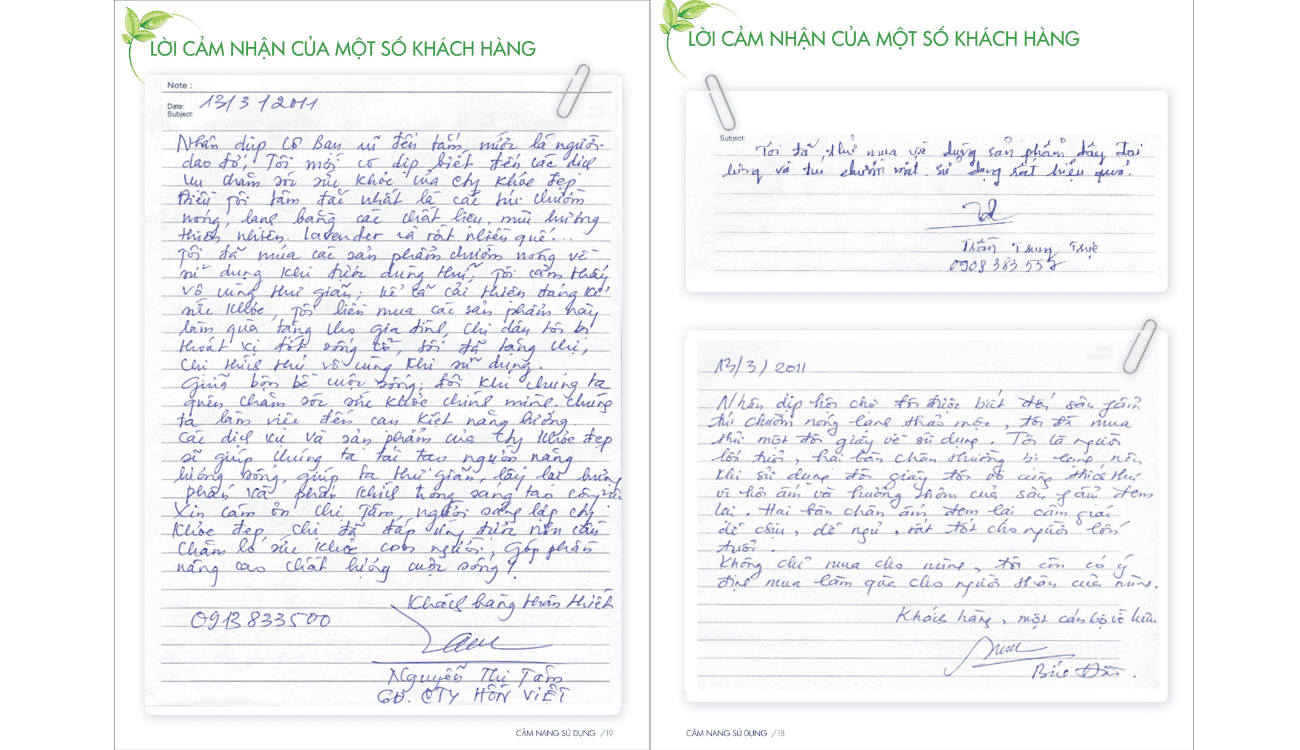 LỜI CẢM NHẬN CỦA MỘT SỐ KHÁCH HÀNG
Note :
Date: 13/3/2011
Subject:
Nhân dịp cô bạn đến tắm, mới là người
dao đỏ, Tôi mới có dịp biết đến các dịch
vụ chăm sóc sức khỏe của Cty Khỏe đẹp
Điều tôi tâm đắc nhất là các túi chườm
nóng, lạnh bằng các chất liệu, mùi hương
thiên nhiên. lavender và rất nhiều quế...
Tôi đã mua các sản phẩm chườm nóng về
sử dụng khi được dùng thử, Tôi cảm thấy
vô cùng thư giãn, kể cả cải thiện đáng kể
sức khỏe, Tôi liền mua các sản phẩm này
làm quà tặng cho gia đình, chị dâu tôi bị
thoát vị đốt sống cổ, tôi đã tặng chị,
chị thích thú vô cùng khi sử dụng.
Giữa bộn bề cuộc sống, đôi khi chúng ta
quên chăm sóc sức khỏe chính mình. chúng
ta làm việc đến cạn kiệt năng lượng.
Các dịch vụ và sản phẩm của Cty Khỏe đẹp
sẽ giúp chúng ta tái tạo nguồn năng
lượng sống, giúp ta thư giãn, lấy lại hưng
phấn và phấn khích trong sáng tạo công việc
Xin cảm ơn chị Tâm, người sáng lập cty
Khỏe đẹp, chị đã đáp ứng được nhu cầu
chăm lo sức khỏe con người, góp phần
nâng cao chất lượng cuộc sống!
Khách hàng thân thiết
0913833500
Nguyễn Thị Tâm
GĐ. CTY HỒN VIỆT
CẨM NANG SỬ DỤNG /19
LỜI CẢM NHẬN CỦA MỘT SỐ KHÁCH HÀNG
Subject:
Tôi đã thử mua về dụng sản phẩm dây đai
lưng và túi chườm mát. sử dụng rất hiệu quả.
Trần Trung Trực
0908 383 557
13/3/2011
Nhân dịp hội chợ tôi được biết đến sản phẩm
túi chườm nóng lạnh thảo mộc, tôi đã mua
thử một đôi giày về sử dụng. Tôi là người
lớn tuổi, hai bàn chân thường bị lạnh nên
khi sử dụng đôi giày tôi vô cùng thích thú
vì hơi ấm và hương thơm của sản phẩm đem
lại. Hai bàn chân ấm đem lại cảm giác
dễ chịu, dễ ngủ, rất tốt cho người lớn
tuổi.
Không chỉ mua cho mình, tôi còn có ý
định mua làm quà cho người thân của mình.
Khách hàng, một cán bộ về hưu
CẨM NANG SỬ DỤNG /18